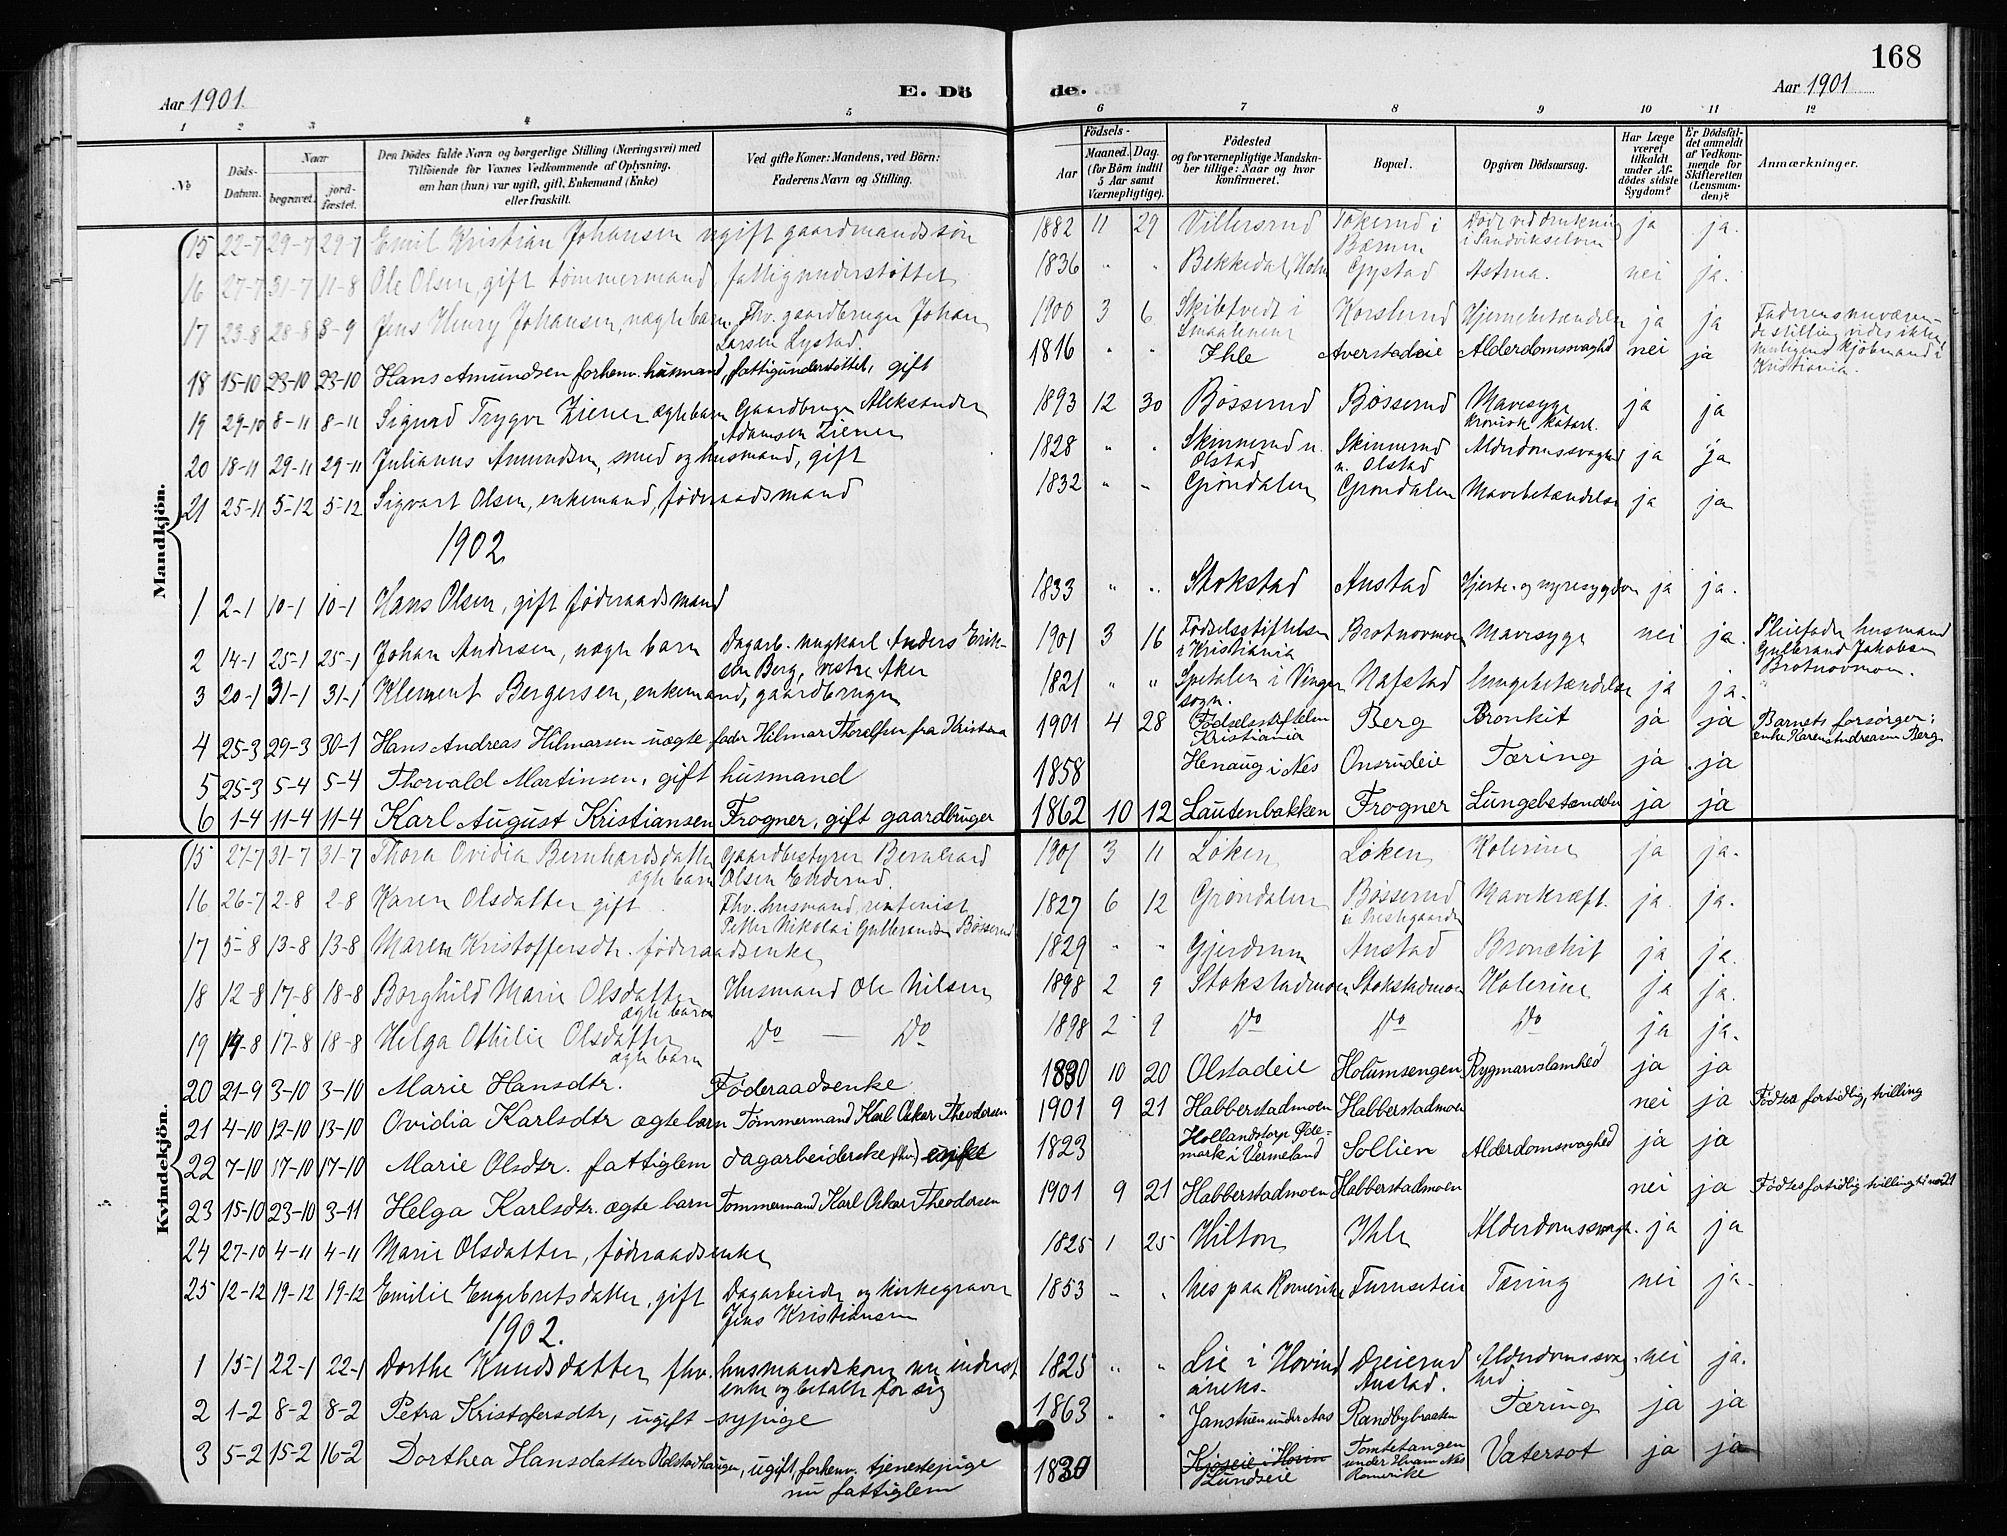 168
Aar 1901
E. Dö
de.
Aar 1901
1 2 3 4 5 6 7 8 9 10 11 12
№
Döds-Datum.
Naar
begravet.
jord-fæstet.
Den Dödes fulde Navn og borgerlige Stilling (Næringsvei) med
Tilföiende for Voxnes Vedkommende af Oplysning,
om han (hun) var ugift, gift, Enkemand (Enke)
eller fraskilt.
Ved gifte Koner: Mandens, ved Börn:
Faderens Navn og Stilling.
Födsels-
Aar
Maaned.
Dag.
(for Börn indtil
5 Aar samt
Værnepligtige).
Födested
og for værnepligtige Mandska-
ber tillige: Naar og hvor
konfirmeret.
Bopæl.
Opgiven Dödsaarsag.
Har Læge
været
tilkaldt
under Af-
dödes sidste
Sygdom?
Er Dödsfal-
det anmeldt
af Vedkom-
mende for
Skifteretten
(Lensman-
den)?
Anmærkninger.
Mandkjön.
15 22-7 29-7 29-7 Emil Kristian Johansen ugift gaardmandssøn 1882 11 29 Villersrud Tokerud i Bærum Døde ved drukning i Sandvikselven ja ja.
16 27-7 31-7 11-8 Ole Olsen, gift tømmermand, fattigunderstøttet 1836 " " Bekkedal, Holm Gystad Astma. nei ja.
17 23-8 28-8 8-9 Jens Henry Johansen, uægte barn Fhv. gaardbruger Johan Larsen Lystad. 1900 3 6 Skibtvedt i Smaalenene Korslund Hjernebetændelse ja ja Faderens nuværen-
de stilling vides ikke,
kjøbmand i
Kristiania.
18 15-10 23-10 23-10 Hans Amundsen forhenv. husmand, fattigunderstöttet, gift 1816 " " Ihle Averstadeie Alderdomsvaghed nei ja
19 29-10 8-11 8-11 Sigurd Trygve Ziener ægte barn Gaardbruger Aleksander Adamsen Ziener 1893 12 30 Bøsserud Bøsserud Mavesyge kronisk katarh. ja ja
20 18-11 29-11 29-11 Julianus Amundsen, smed og husmand, gift 1828 " " Skinnerud u. Olstad Skinnerud u. Olstad Alderdomssvaghed ja ja
21 25-11 5-12 5-12 Sigvart Olsen, enkemand, føderaadsmand 1832 " " Grøndalen Grøndalen Mavebetændelse ja ja
1902
1 2-1 10-1 10-1 Hans Olsen, gift føderaadsmand 1833 " " Stokstad Anstad Hjerte- og nyresygdom ja ja.
2 14-1 25-1 25-1 Johan Andersen, uægte barn Dagarb. ungkarl Anders Erik-
sen Berg, vestre Aker 1901 3 16 Fødselsstiftelsen i Kristiania Brotnovmoen Mavesyge nei ja. Pleiefader husmand
Gulbrand Jakobsen
Brotnovmoen.
3 20-1 31-1 31-1 Klement Bergersen, enkemand, gaardbruger 1821 " " Spetalen i Vinger sogn. Nafstad Lungebetændelse ja ja.
4 25-3 29-3 30-1 Hans Andreas Hilmarsen uægte fader Hilmar Thoralfsen fra Kristiania 1901 4 28 Fødselsstiftelsen Kristiania Berg Bronkit ja ja Barnets forsörger:
enke Karen Andreasen Berg
5 25-3 5-4 5-4 Thorvald Martinsen, gift husmand 1858 Henaug i Nes Onsrudeie Tæring ja ja
6 1-4 11-4 11-4 Karl August Kristiansen Frogner, gift gaardbruger 1862 10 12 Lautenbakken Frogner Lungebetændelse ja ja
Kvindekjön.
15 27-7 31-7 31-7 Thora Ovidia Bernhardsdatter ægte barn Gaardbestyrer Bernhard Olsen Enderud. 1901 3 11 Løken Løken Kolerine ja ja.
16 26-7 2-8 2-8 Karen Olsdatter gift Fhv. husmand, rentenist
Petter Nikolai Gulbrandsen Bøsserud 1827 6 12 Grøndalen Bøsserud i Prestegaarden Mavekræft. ja ja.
17 5-8 13-8 13-8 Maren Kristoffersdtr. føderaadsenke 1829 " " Gjerdrum Anstad Bronchit ja ja.
18 12-8 17-8 18-8 Borghild Marie Olsdatter ægte barn Husmand Ole Nilsen 1898 2 9 Stokstadmoen Stokstadmoen Kolerine ja ja.
19 14-8 17-8 18-8 Helga Othilie Olsdatter ægte barn Do — Do 1898 2 9 Do Do Do ja ja.
20 21-9 3-10 3-10 Marie Hansdtr. Föderaadsenke 1830 10 20 Olstadeie Holumsengen Rygmarvslamhed ja ja
21 4-10 12-10 13-10 Ovidia Karlsdtr ægte barn Tömmermand Karl Oskar Theodorsen 1901 9 21 Habberstadmoen Habberstadmoen nei ja Födtes fortidlig, tvilling
22 7-10 17-10 17-10 Marie Olsdtr. fattiglem dagarbeiderske (fhv) ugift 1823 Hollandstorp Øde-
mark i Vermeland Sollien Alderdomsvaghed ja ja
23 15-10 23-10 3-11 Helga Karlsdtr. ægte barn Tömmermand Karl Oskar Theodorsen 1901 9 21 Habberstadmoen Habberstadmoen nei ja Födtes fortidlig tvilling til no 21
24 27-10 4-11 4-11 Marie Olsdatter, føderaadsenke 1825 1 25 Hilton Ihle Alderdomssvagh. ja ja
25 12-12 19-12 19-12 Emilie Engebretsdatter, gift Dagarbeider og kirkegraver Jens Kristiansen 1853 " " Nes paa Romerike Furuseteie Tæring nei ja.
1902.
1 15-1 22-1 22-1 Dorthe Knudsdatter fhv. husmandskone nu inderst
enke og betalte for sig 1825 " " Lie i Hovind anneks. Anstad. Alderdomssvaghed nei ja.
2 1-2 8-2 8-2 Petra Kristofersdtr, ugift sypige 1863 " " Janstuen under Aas Randbybraaten Tæring ja ja
3 5-2 15-2 16-2 Dorthea Hansdatter Olstadhaugen, ugift, forhenv. tjenestepige
nu fattiglem 1830 Kjoseie i Hovin Lundseie Tomtetangen under Hvam Nes Romerike Vatersot ja ja